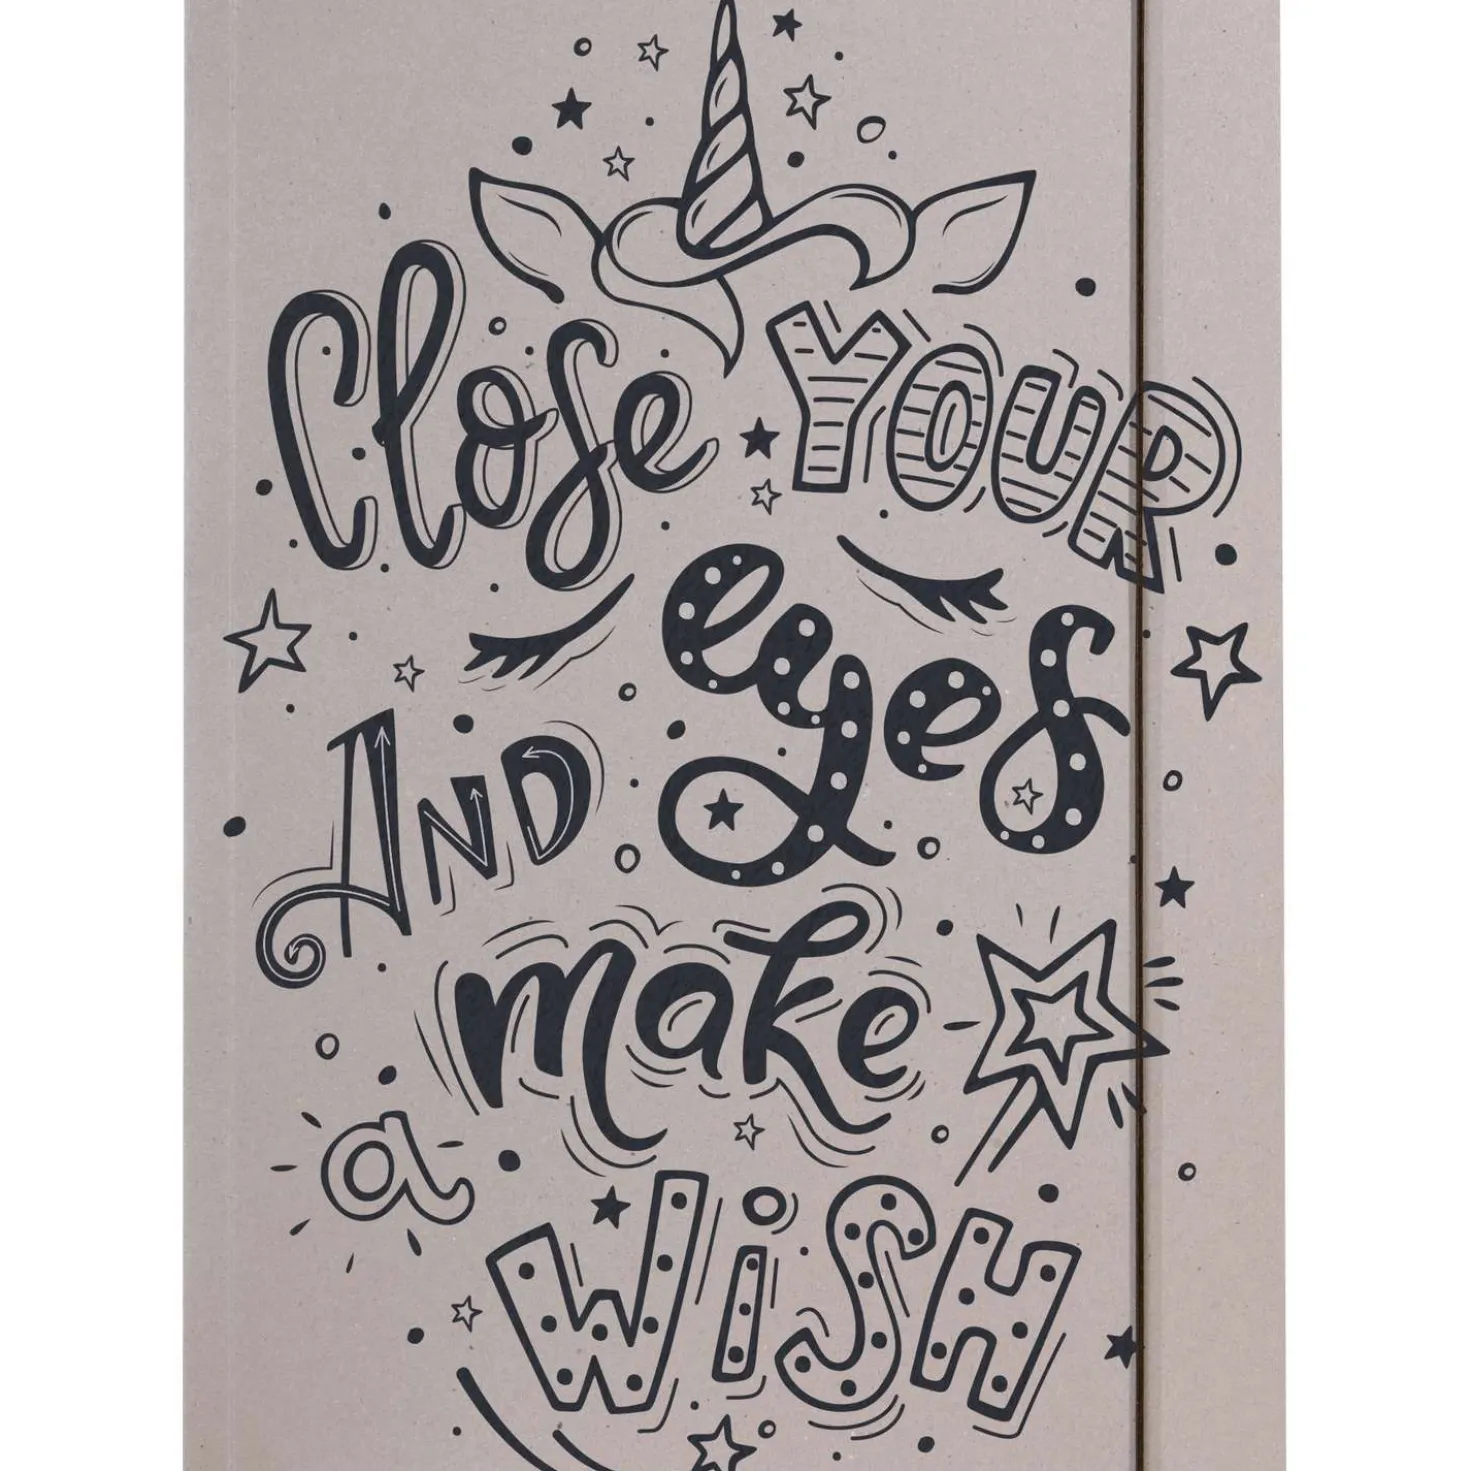 Close YOUR
eyes
AND
make
a
WiSH